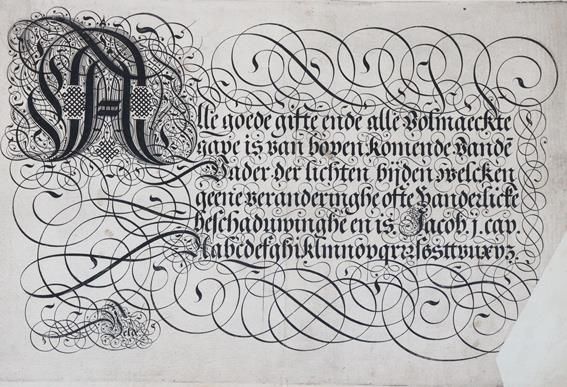 Alle goede gifte ende alle Volmaeckte
gave is van boven komende vandē
Vader der lichten bijden welcken
geene veranderinghe ofte Vanderlicke
beschaduwinghe en is. Jacob j. cap.
Aabcdefghiklmnopqrrsssttvuxyz.
Velde